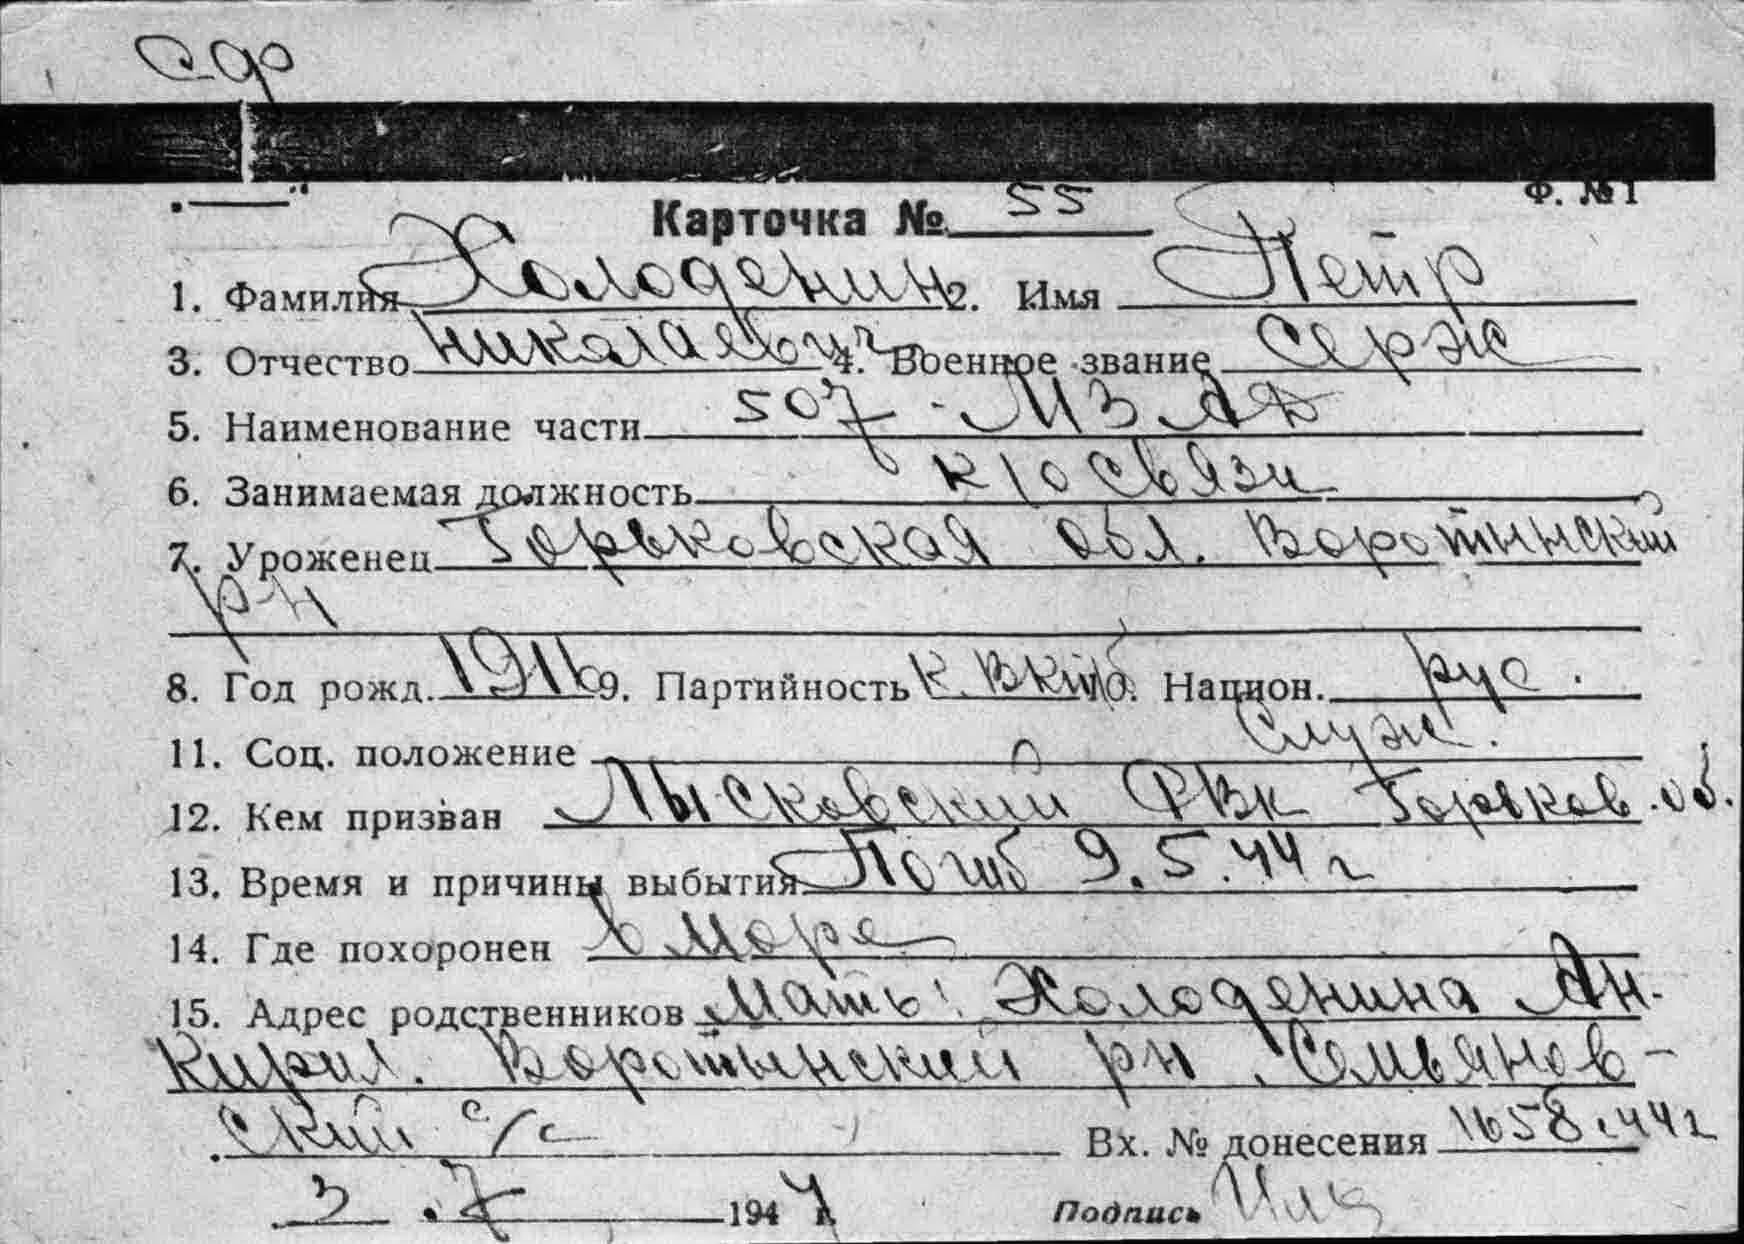 СФ
Ф. №1
Карточка № 55
1. Фамилия Холоденин 2. Имя Петр
3. Отчество Николаевич 4. Военное звание серж
5. Наименование части 507 - МЗАД
6. Занимаемая должность к/о связи
7. Уроженец Горьковская обл. Воротынский
рн
8. Год рожд. 1916 9. Партийность к. ВКПб. Национ. рус.
11. Соц. положение служ.
12. Кем призван Лысковский РВК Горьков. об.
13. Время и причины выбытия Погиб 9.5.44 г
14. Где похоронен в море
15. Адрес родственников Мать: Холоденина Ан.
Кирил. Воротынский рн. Семьянов-
ский с/с Вх. № донесения 1658.44г
3.7 1947 Подпись